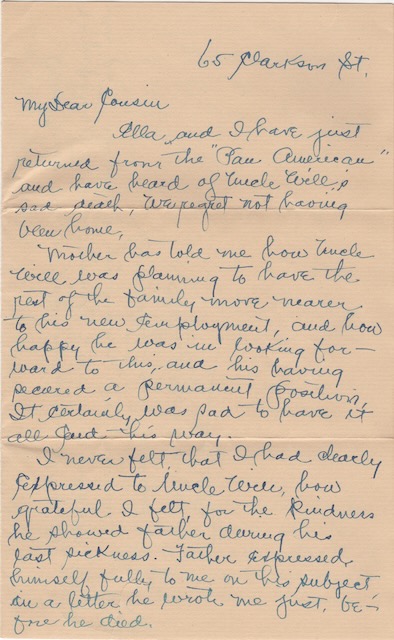 65 Clarkson St.
My Dear Cousin
Ella and I have just
returned from the "Pan American"
and have heard of Uncle Will's
sad death, We regret not having
been home,
Mother has told me how Uncle
Will was planning to have the
rest of the family move nearer
to his new employment, and how
happy he was in looking for-
ward to this, and his having
secured a permanent position,
It certainly was sad to have it
all end this way.
I never felt that I had clearly
expressed to Uncle Will, how
grateful I felt, for the kindness
he showed father during his
last sickness. Father expressed
himself fully to me on this subject
in a letter he wrote me just be-
fore he died.